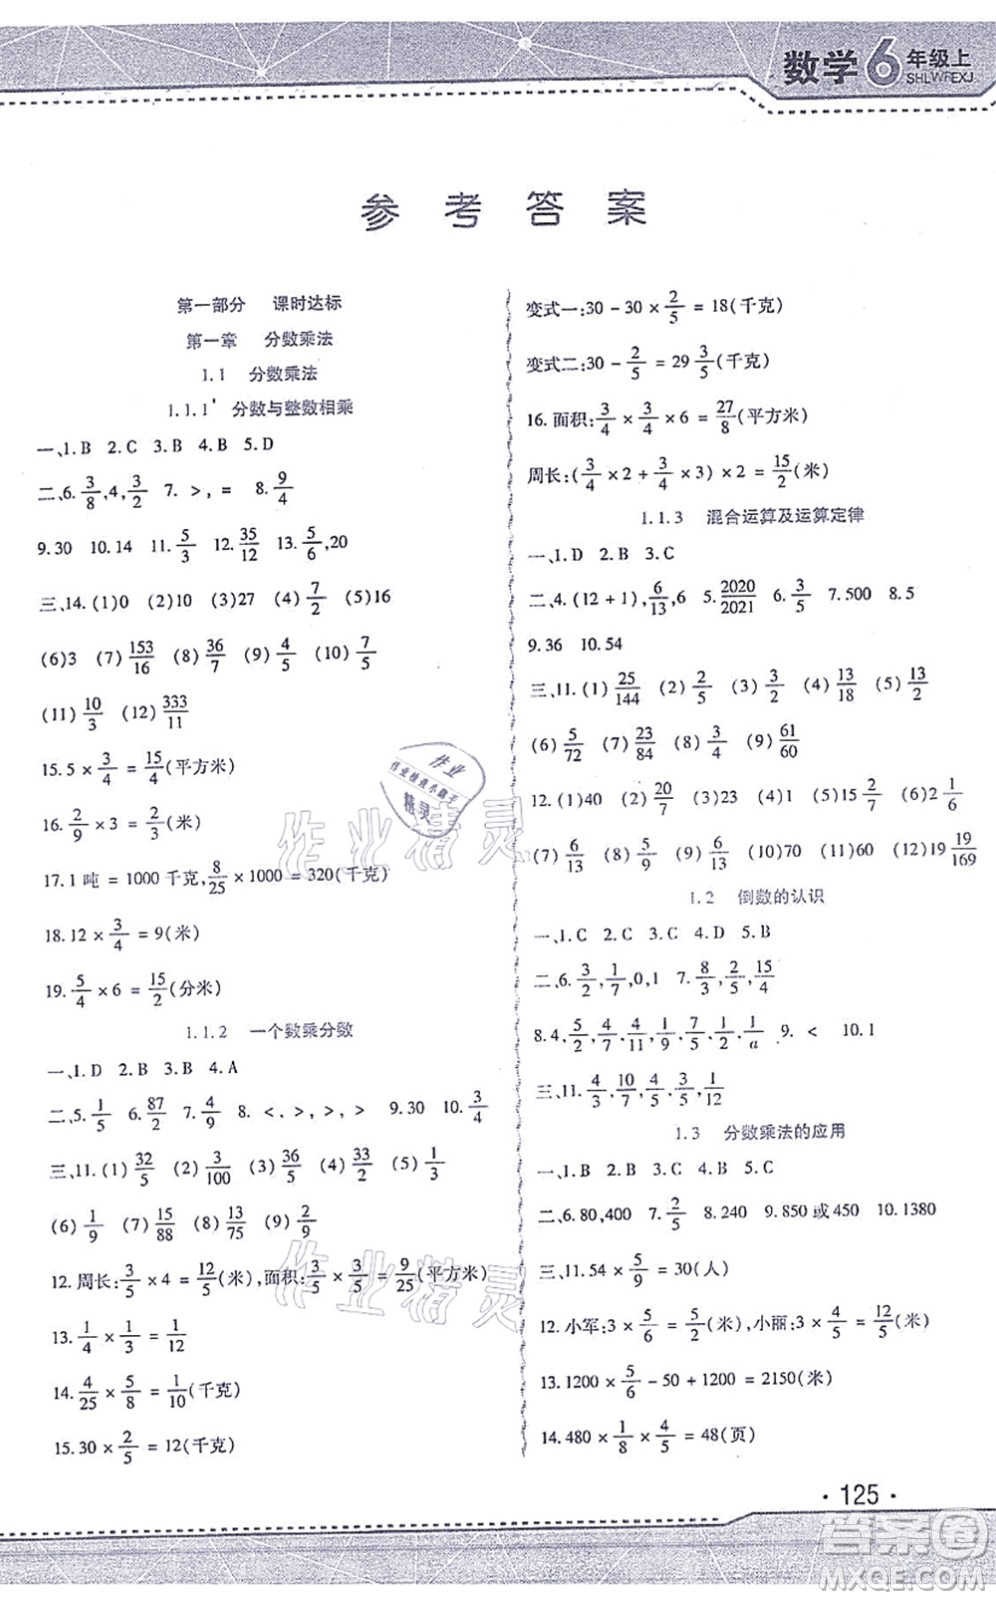 数学6年级上
SHLWFEXJ
参考答案
第一部分 课时达标
第一章 分数乘法
1.1 分数乘法
1.1.1 分数与整数相乘
一、1.B 2.C 3.B 4.B 5.D
二、6.3/8,4,3/2 7.>,= 8.9/4
9.30 10.14 11.5/3 12.35/12 13.5/6,20
三、14.(1)0 (2)10 (3)27 (4)7/2 (5)16
(6)3 (7)153/16 (8)36/7 (9)4/5 (10)7/5
(11)10/3 (12)333/11
15.5×3/4=15/4(平方米)
16.2/9×3=2/3(米)
17.1吨=1000千克,8/25×1000=320(千克)
18.12×3/4=9(米)
19.5/4×6=15/2(分米)
1.1.2 一个数乘分数
一、1.D 2.B 3.B 4.A
二、5.1/5 6.87/2 7.4/9 8.<,>,>,> 9.30 10.3/4
三、11.(1)32/5 (2)3/100 (3)36/5 (4)33/2 (5)1/3
(6)1/9 (7)15/88 (8)13/75 (9)2/9
12.周长:3/5×4=12/5(米),面积:3/5×3/5=9/25(平方米)
13.1/4×1/3=1/12
14.4/25×5/8=1/10(千克)
15.30×2/5=12(千克)
变式一:30-30×2/5=18(千克)
变式二:30-2/5=29 3/5(千克)
16.面积:3/4×3/4×6=27/8(平方米)
周长:(3/4×2+3/4×3)×2=15/2(米)
1.1.3 混合运算及运算定律
一、1.D 2.B 3.C
二、4.(12+1),6/13,6 5.2020/2021 6.3/5 7.500 8.5
9.36 10.54
三、11.(1)25/144 (2)2/5 (3)3/2 (4)13/18 (5)13/2
(6)5/72 (7)23/84 (8)3/4 (9)61/60
12.(1)40 (2)20/7 (3)23 (4)1 (5)15 2/7 (6)2 1/6
(7)6/13 (8)5/9 (9)6/13 (10)70 (11)60 (12)19 19/169
1.2 倒数的认识
一、1.C 2.C 3.C 4.D 5.B
二、6.3/2,1/7,0,1 7.8/3,2/5,15/4
8.4,5/2,7/4,4/11,1/9,7/5,1/2,1/a 9.< 10.1
三、11.4/3,10/7,4/5,8/7,1/12
1.3 分数乘法的应用
一、1.B 2.B 3.C 4.B 5.C
二、6.80,400 7.2/5 8.240 9.850或450 10.1380
三、11.54×5/9=30(人)
12.小军:3×5/6=5/2(米),小丽:3×4/5=12/5(米)
13.1200×5/6-50+1200=2150(米)
14.480×1/8×4/5=48(页)
·125·
作业
作业检查小助手
精灵
作业精灵
作业精灵
答案圈
MXQE.COM